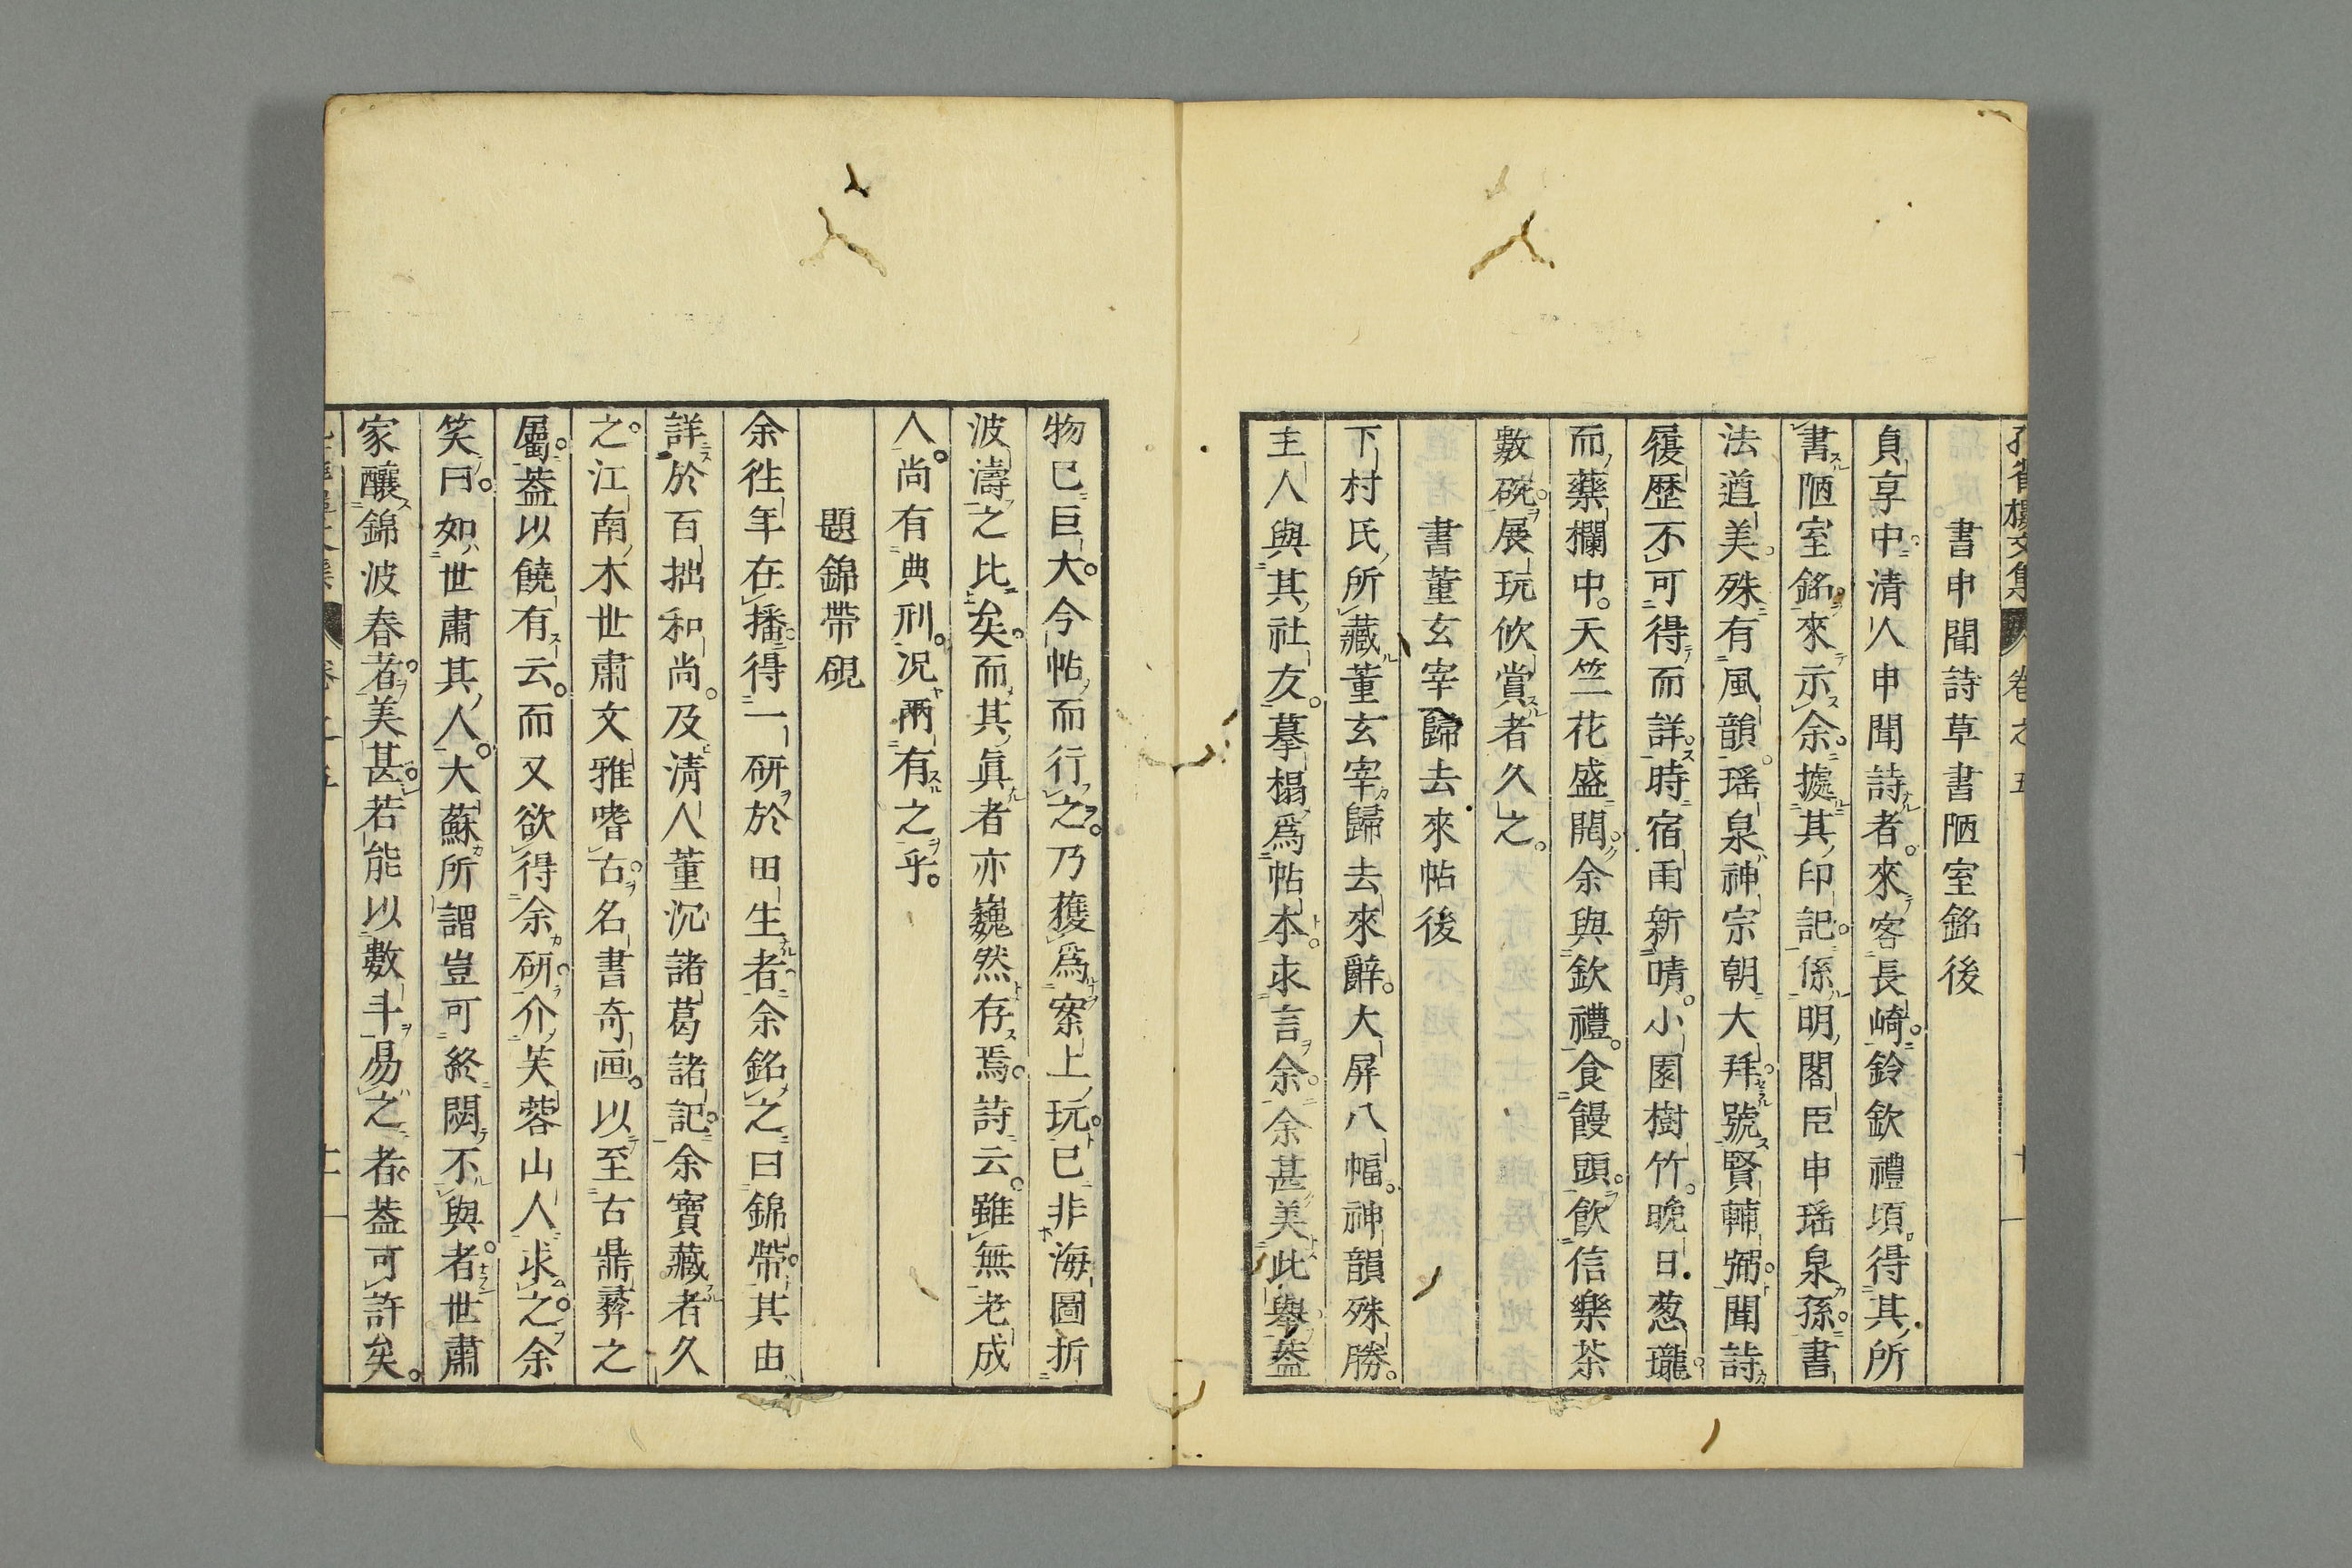 孔雀樓文集 卷之五
書申聞詩草書陋室銘後
貞享中。清人申聞詩者。來客長崎。鈴欽禮頃得其所
書陋室銘。來示余。據其印記。係明閣臣申瑤泉孫。書
法遒美。殊有風韻。瑤泉神宗朝大拜。號賢輔弼。聞詩
履歷不可得而詳。時宿雨新晴。小園樹竹。晚日葱瓏。
而藥欄中。天竺花盛開。余與欽禮。食饅頭。飲信樂茶
數碗。展玩欣賞者久之。
書董玄宰歸去來帖後
下村氏所藏董玄宰歸去來辭。大屏八幅。神韻殊勝。
主人與其社友。摹榻爲帖本。求言余。余甚美此舉。蓋
物已巨大。今帖而行之。乃獲爲案上玩。已非海圖折
波濤之比矣。而其眞者亦巍然存焉。詩云。雖無老成
人。尚有典刑。况兩有之乎。
題錦帶硯
余徃年在播。得一研於田生者。余銘之曰錦帶。其由
詳於百拙和尚。及淸人董沉諸葛諸記。余寶藏者久
之。江南木世肅文雅嗜古。名書奇画。以至古鼎彛之
屬。蓋以饒有云。而又欲得余研。介芙蓉山人求之。余
笑曰。如世肅其人。大蘇所謂豈可終閟不與者。世肅
家釀錦波春者。美甚。若能以數斗易之者。蓋可許矣。